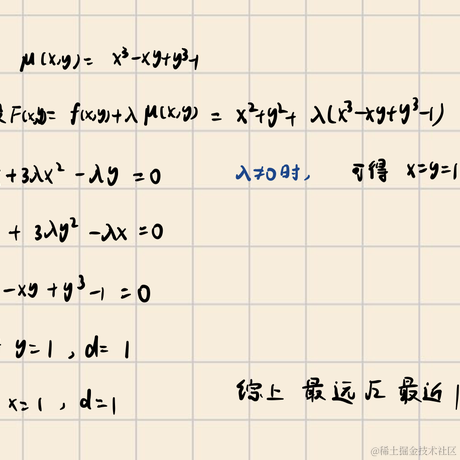 μ(x,y) = x³-xy+y³-1
F(x,y)= f(x,y)+λ μ(x,y) = x²+y²+ λ(x³-xy+y³-1)
+3λx² -λy =0 λ≠0时, 可得 x=y=1
+ 3λy² -λx =0
-xy +y³-1 =0
y=1 , d= 1
x=1 , d=1
综上 最远√2 最近1
@稀土掘金技术社区